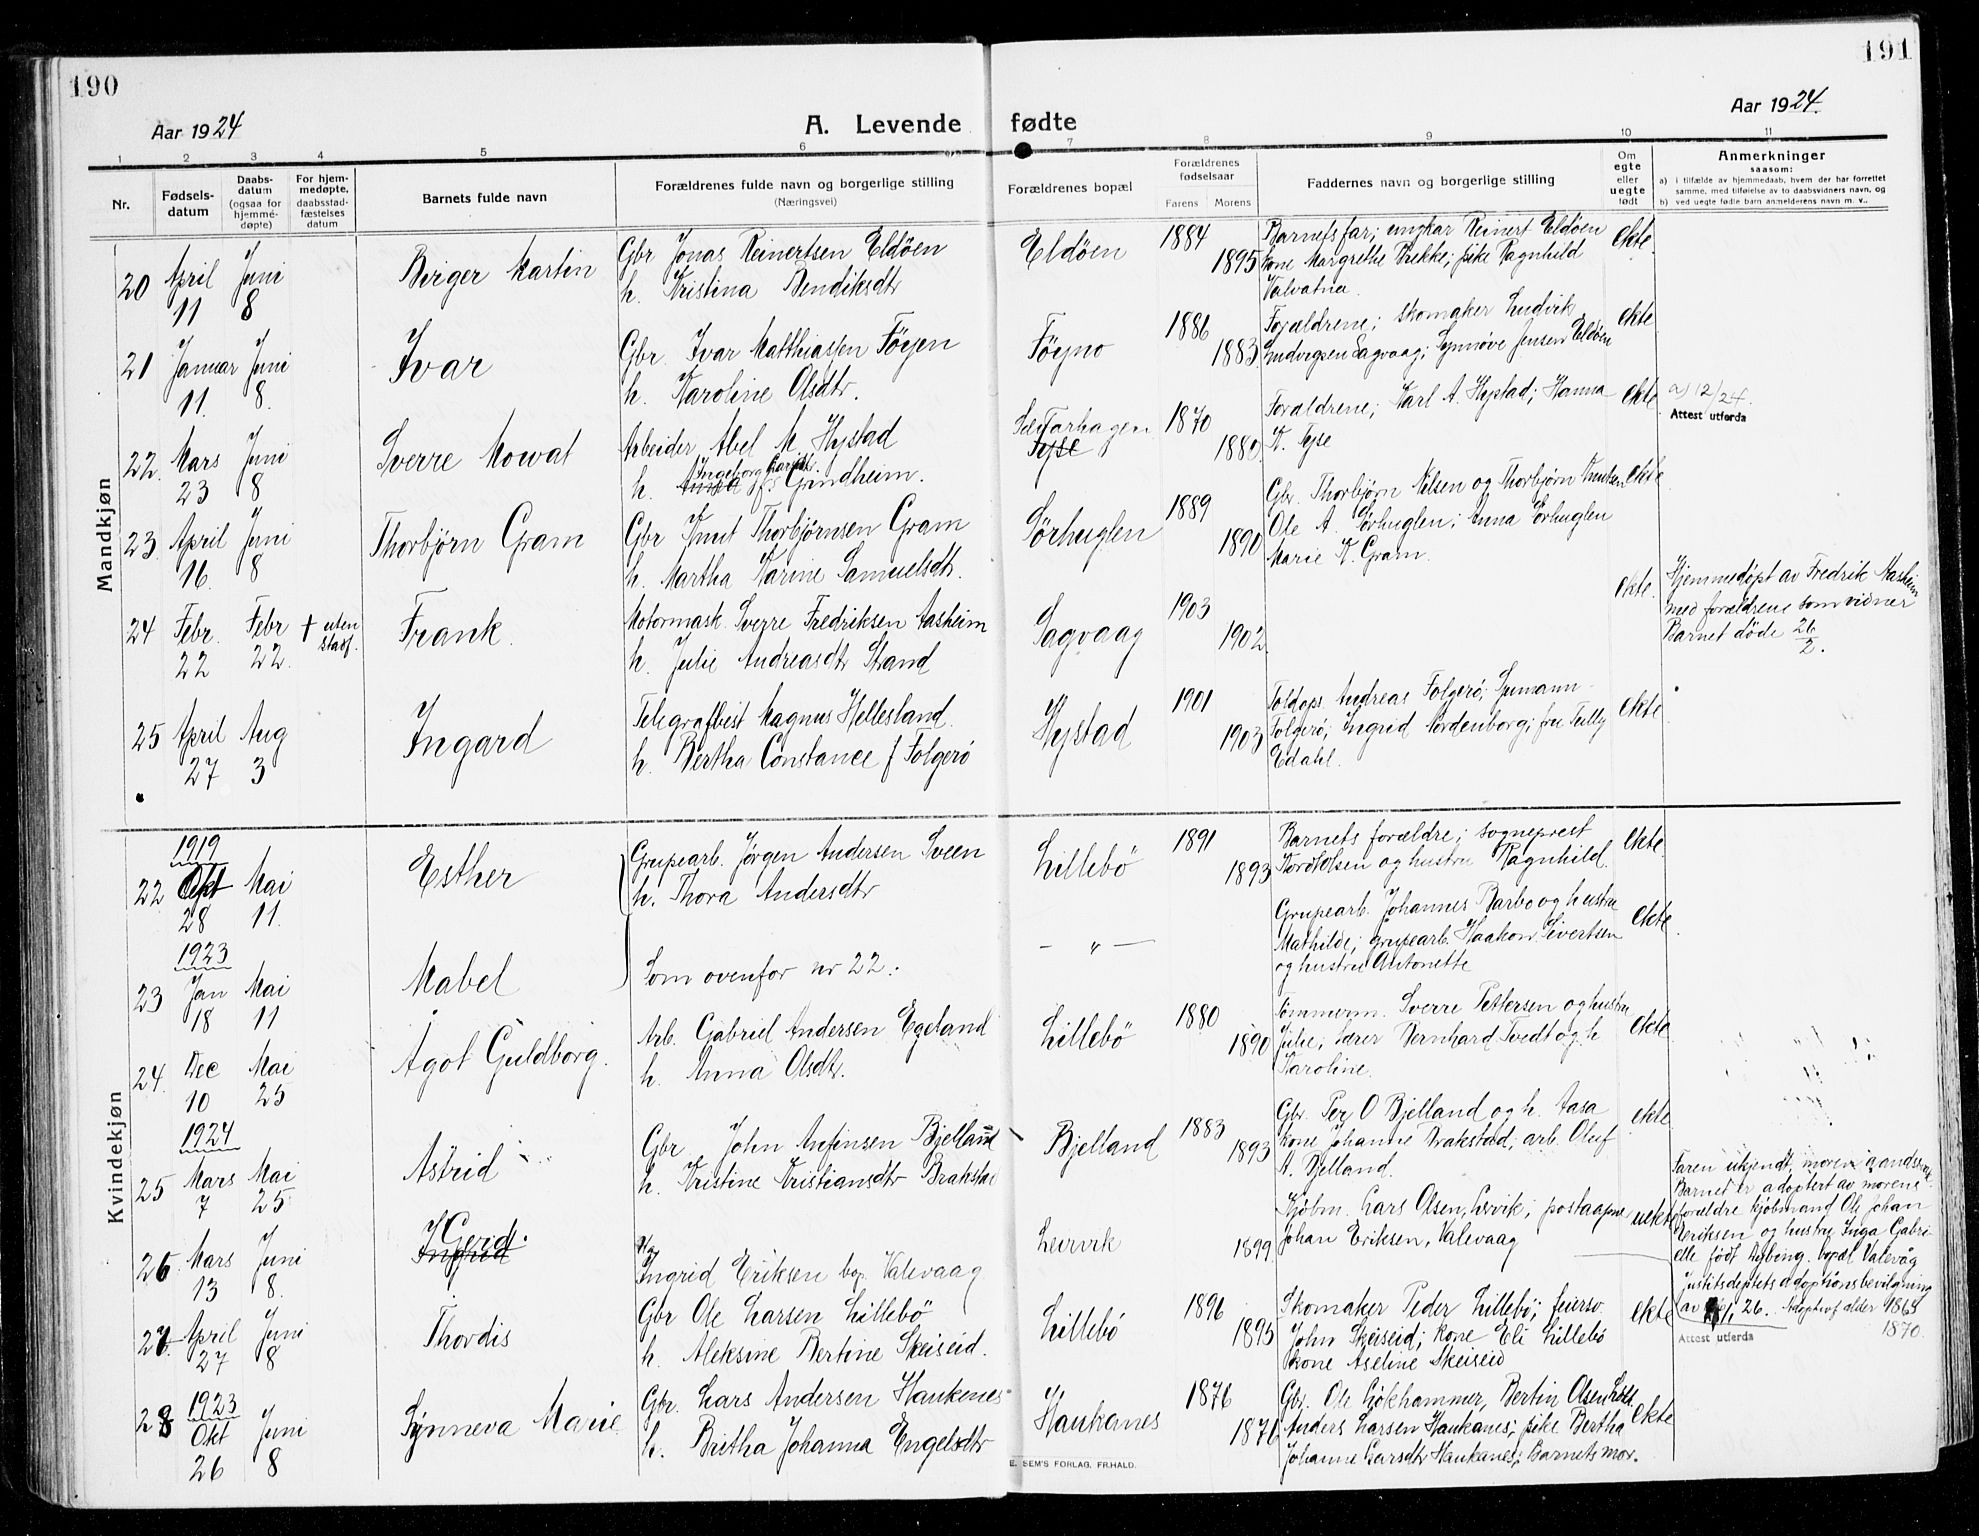 190
191
Aar 1924
A. Levende fødte
Aar 1924.
1 2 3 4 5 6 7 8 9 10 11
Nr.
Fødsels-
datum
Daabs-
datum
(ogsaa for
hjemme-
døpte)
For hjem-
medøpte,
daabsstad-
fæstelses
datum
Barnets fulde navn
Forældrenes fulde navn og borgerlige stilling
(Næringsvei)
Forældrenes bopæl
Forældrenes
fødselsaar
Farens Morens
Faddernes navn og borgerlige stilling
Om
egte
eller
uegte
født
Anmerkninger
saasom:
a) i tilfælde av hjemmedaab, hvem der har forrettet
samme, med tilføielse av to daabsvidners navn, og
b) ved uegte fødte barn anmelderens navn m. v..
Mandkjøn
20 April 11 Juni 8
Birger Martin
Gbr Jonas Reinertsen Eldöen
h. Kristina Bendiksdtr
Eldöen
1884
1895
Barnets far; ungkar Reinert Eldöen
kone Margrethe Brekke; pike Ragnhild
Valvatna.
ekte.
21 Januar 11. Juni 8.
Ivar
Gbr. Ivar Matthiassen Föyen
h. Karoline Olsdtr.
Föyno
1886
1883
Forældrene; skomaker Ludvik
Ludvigsen Sagvaag; Synnöve Jensen Eldöen
ekte
22. Mars 23 Juni 8
Sverre Mowat
Arbeider Abel M. Hystad
h. Ingeborg Grindheim.
Tyse
1870
1880
Forældrene; Karl A. Hystad; Hanna
K. Tyse
ekte
a) 12/24.
Attest utferda
23. April 16. Juni 8
Thorbjørn Gram
Gbr Knut Thorbjörnsen Gram
h. Martha Karine Samuelsdtr.
Sörhuglen
1889
1890
Gbr. Thorbjørn Nilsen og Thorbjørn Knutsen
Ole A. Sörhuglen; Anna Sörhuglen
Marie K. Gram.
ekte
24 Febr. 22 Febr 22. † uten stadf.
Frank.
Motormask. Sverre Fredriksen Aasheim
h. Julie Andreasdtr Strand
Sagvaag
1903
1902
ekte.
Hjemmedöpt av Fredrik Aasheim
med forældrene som vidner
Barnet döde 26/2.
25 April 27 Aug 3
Ingard
Telegrafbest Magnus Hellesland.
h. Bertha Constance f Folgerö
Hystad
1901
1903
Toldops. Andreas Folgerö;
Folgerö; Ingrid Nordenborg; fru Tully
Edahl.
ekte
Kvindekjøn
22 1919 Okt 28 Mai 11.
Esther
Grupearb. Jörgen Andersen Sveen
h. Thora Andersdtr
Lillebö
1891
1893
Barnets forældre; sogneprest
og hustru Ragnhild.
ekte
23 1923 Jan 18 Mai 11
Mabel
Som ovenfor nr 22.
— " —
Grupearb. Johannes Barbo og hustru
Mathilde; grupearb. Haakon Sivertsen
og hustru Antonette
ekte.
24. Dec 10 Mai 25
Ågot Guldborg.
Arb. Gabriel Andersen Egeland
h. Anna Olsdtr.
Lillebö
1880
1890
Tömmerm. Sverre Pettersen og hustru
Julie; Lærer Bernhard Tvedt og h
Karoline.
ekte
25 1924 Mars 7 Mai 25
Astrid
Gbr John Anfinsen Bjelland
h. Kristine Kristiansdtr Brakstad
Bjelland
1883
1893
Gbr. Per O Bjelland og h. Aasa
kone Johanne Brakstad; arb. Oluf
A. Bjelland.
ekte
26 Mars 13 Juni 8.
Gerid.
Ingrid
Ingrid Eriksen bop. Valevaag
Leirvik
1899
Kjöbm. Lars Olsen, Lervik; postaapner
Johan Eriksen, Valevaag
uekte
Faren ukjendt, moren
Barnet er adoptert av morens
forældre kjöbmand Ole Johan
Eriksen og hustru Inga Gabri-
elle födt Nybing. bopæl Valevåg
Justitsdeptets adoptionsbevilgning
av 1, 26. Adoptivf alder 1865
1870.
Attest utferda
27. April 27 Juni 8
Thordis
Gbr Ole Larsen Lillebö
h. Aleksine Bertine Skeiseid.
Lillebö
1896
1895
Skomaker Peder Lillebö;
John Skeiseid; kone Eli Lillebö
kone Aseline Skeiseid
ekte
28 1923 Okt 26 Juni 8
Synneva Marie
Gbr. Lars Andersen Haukenes
h. Britha Johanna Engelsdtr
Haukanes
1876
1876
Gbr. Ole Gjökhammer, Bertin Olsen
Anders Larsen Haukanes; pike Bertha
Johanne Larsdtr Haukanes; Barnets mor.
ekte
E. SEM'S FORLAG. FR.HALD.